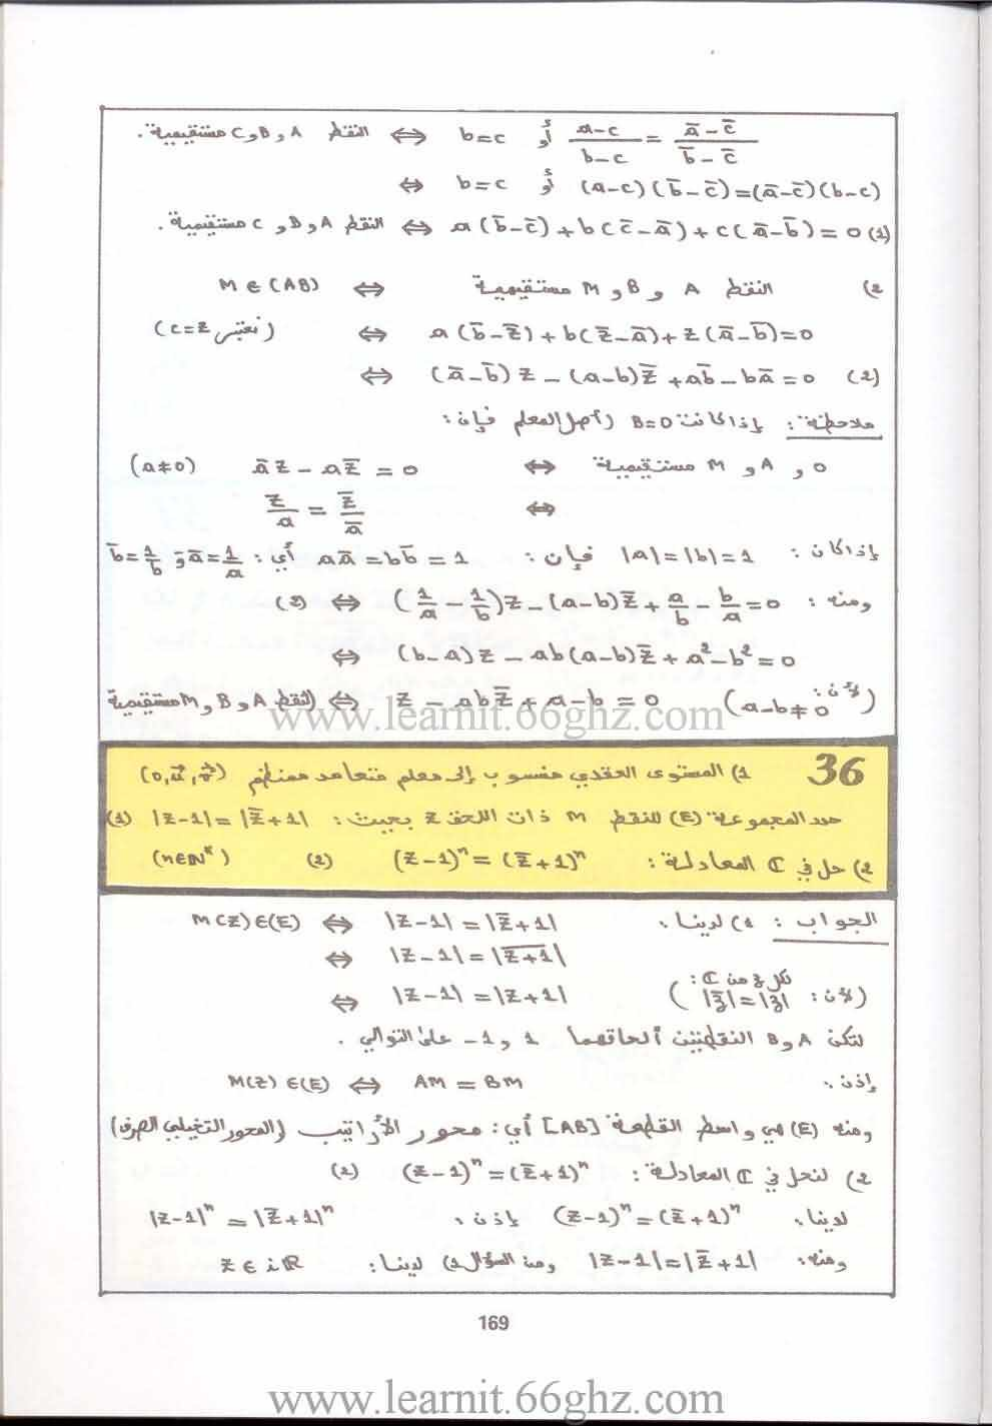 النقط A و B و C مستقيمية. ⇔ b=c أو (a-c)/(b-c) = (ā-c̄)/(b̄-c̄)
⇔ b=c أو (a-c)(b̄-c̄)=(ā-c̄)(b-c)
النقط A و B و C مستقيمية. ⇔ a(b̄-c̄)+b(c̄-ā)+c(ā-b̄)=0 (1)
2) النقط A و B و M مستقيمية ⇔ M∈(AB)
(نعتبر c=z) ⇔ a(b̄-z̄)+b(z̄-ā)+z(ā-b̄)=0
⇔ (ā-b̄)z-(a-b)z̄+ab̄-bā=0 (2)
ملاحظة: إذا كانت B=O (أصل المعلم فإن:
O و A و M مستقيمية ⇔ āz-az̄=0 (a≠0)
⇔ z/a = z̄/ā
إذا كان: |a|=|b|=1 فإن: aā=bb̄=1 أي: ā=1/a و b̄=1/b
ومنه: (2) ⇔ (1/a - 1/b)z-(a-b)z̄+a/b-b/a=0
⇔ (b-a)z-ab(a-b)z̄+a²-b²=0
(لأن: a-b≠0) z-abz̄+a-b=0 ⇔ (النقط A و B و M مستقيمية
www.learnit.66ghz.com
36 1) المستوى العقدي منسوب إلى معلم متعامد ممنظم (o,u⃗,v⃗)
حدد المجموعة (E) للنقط M ذات اللحق z بحيث: |z-1|=|z̄+1| (1)
2) حل في ℂ المعادلة: (z-1)ⁿ=(z̄+1)ⁿ (2) (n∈ℕ*)
الجواب: 1) لدينا، M(z)∈(E) ⇔ |z-1|=|z̄+1|
⇔ |z-1|=|z̅+̅1̅|
(لأن: لكل z من ℂ: |z̄|=|z|) ⇔ |z-1|=|z+1|
لتكن A و B النقطتين ألحاقهما 1 و -1 على التوالي.
إذن، M(z)∈(E) ⇔ AM=BM
ومنه (E) هي واسط القطعة [AB] أي: محور الأراتيب (المحور التخيلي الصرف)
2) لنحل في ℂ المعادلة: (z-1)ⁿ=(z̄+1)ⁿ (2)
لدينا، (z-1)ⁿ=(z̄+1)ⁿ إذن، |z-1|ⁿ=|z̄+1|ⁿ
ومنه: |z-1|=|z̄+1| ومن السؤال 1) لدينا: z∈iℝ
169
www.learnit.66ghz.com